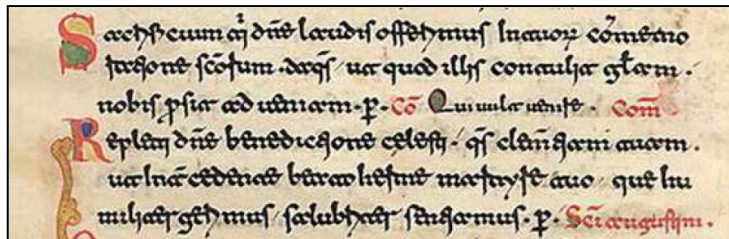 Sacrificium t̄i dn̄e laudis offerimus In tuor̄ com̄emo
ratione sc̄orum. da q̄s ut quod illis contulit gl̄am.
nobis p̱sit ad ueniam. p̱. Co̅ Qui uult uenire. Com̅
Repleti dn̄e benedictione celesti. q̄s clem̄tiam tuam.
ut Int̄cedente beato martyre tuo que hu
militer gerimus. salubriter sentiamus. p̱. Sc̄i augustini.